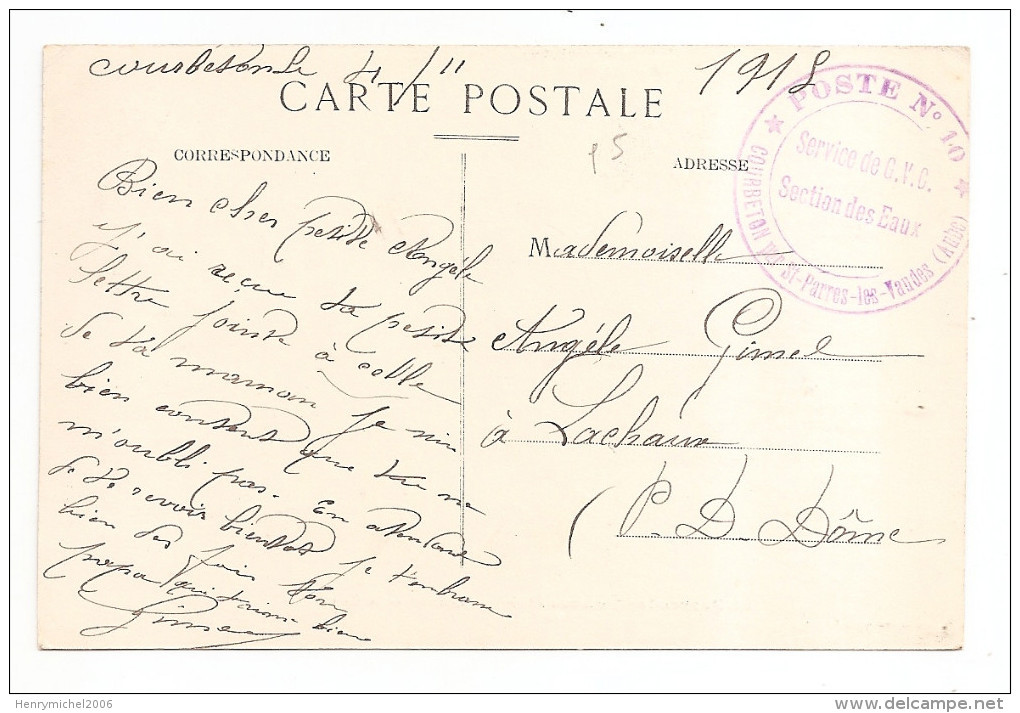 4/11 1918
CARTE POSTALE
CORRESPONDANCE
ADRESSE
POSTE N° 10
Service de G.V.C.
Section des Eaux
COURBETON par St-Parres-les-Vaudes (Aube)
Bien cher petite Angéle
j'ai reçue ta petite
lettre jointe à celle
de ta maman je suis
bien content que tu ne
m'oubli pas. En atendant
de te revoir bientot je t'embrasse
bien des fois ton
papa qui t'aime bien
Gimel
Mademoiselle
Angéle Gimel
à Lachaux
(P-D-Dôme
Henrymichel2006
www.delcampe.net